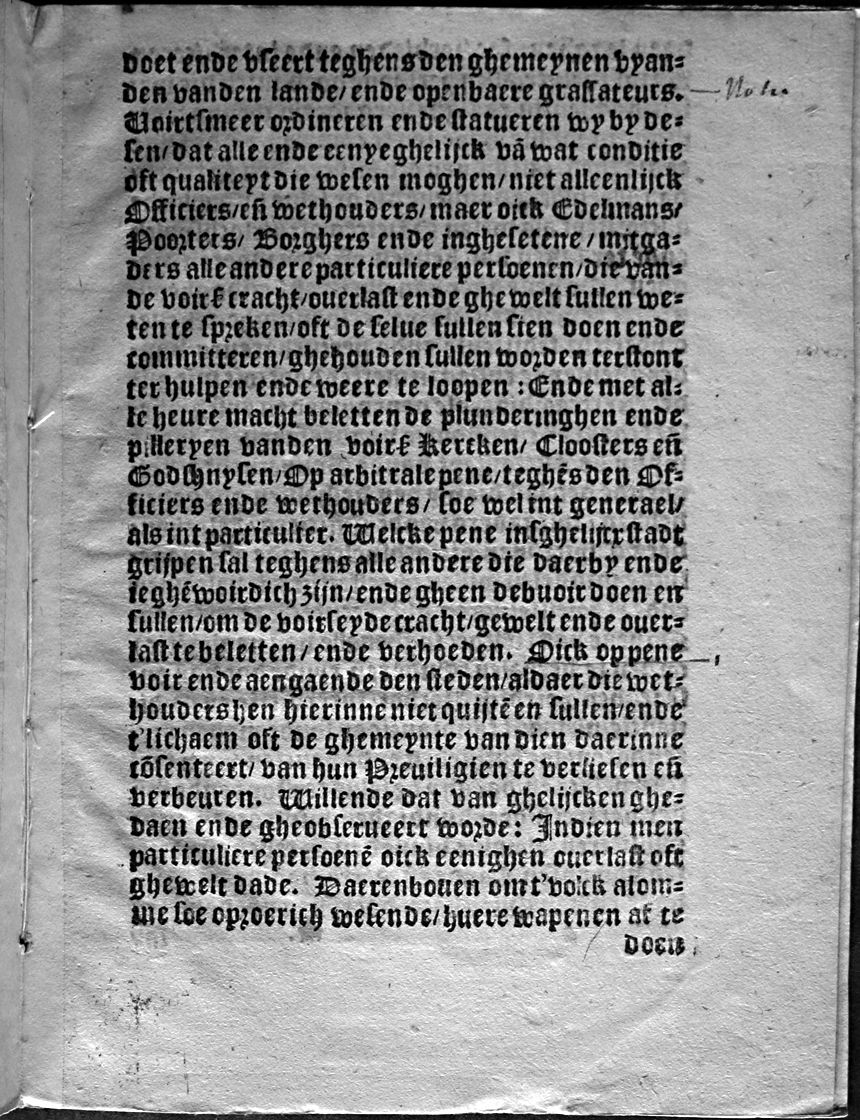 doet ende vseert teghens den ghemeynen vyan=
den vanden lande/ ende openbaere grassateurs.
Voirtsmeer ordineren ende statueren wy by de=
sen/ dat alle ende eenyeghelijck vā wat conditie
oft qualiteyt die wesen moghen/ niet alleenlijck
Officiers/ en̄ wethouders/ maer oick Edelmans/
Poorters/ Borghers ende inghesetene/ mitga=
ders alle andere particuliere persoenen/ die van=
de voirß cracht/ ouerlast ende ghewelt sullen we=
ten te spreken/ oft de selue sullen sien doen ende
committeren/ ghehouden sullen worden terstont
ter hulpen ende weere te loopen : Ende met al=
le heure macht beletten de plunderinghen ende
pilleryen vanden voirß Kercken/ Cloosters en̄
Godshuysen/ Op arbitrale pene/ teghēs den Of=
ficiers ende wethouders/ soe wel int generael/
als int particulier. Welcke pene insghelijcx stadt
grijpen sal teghens alle andere die daer by ende
ieghēwoirdich zijn/ ende gheen debuoir doen en
sullen/ om de voirseyde cracht/ gewelt ende ouer=
last te beletten/ ende verhoeden. Oick op pene
voir ende aengaende den steden/ aldaer die wet=
houders hen hierinne niet quijtē en sullen/ ende
t'lichaem oft de ghemeynte van dien daerinne
cōsenteert/ van hun Preuiligien te verliesen en̄
verbeuren. Willende dat van ghelijcken ghe=
daen ende gheobserueert worde: Indien men
particuliere persoenē oick eenighen ouerlast oft
ghewelt dade. Daerenbouen om t'volck alom=
me soe oproerich wesende/ huere wapenen af te
doen